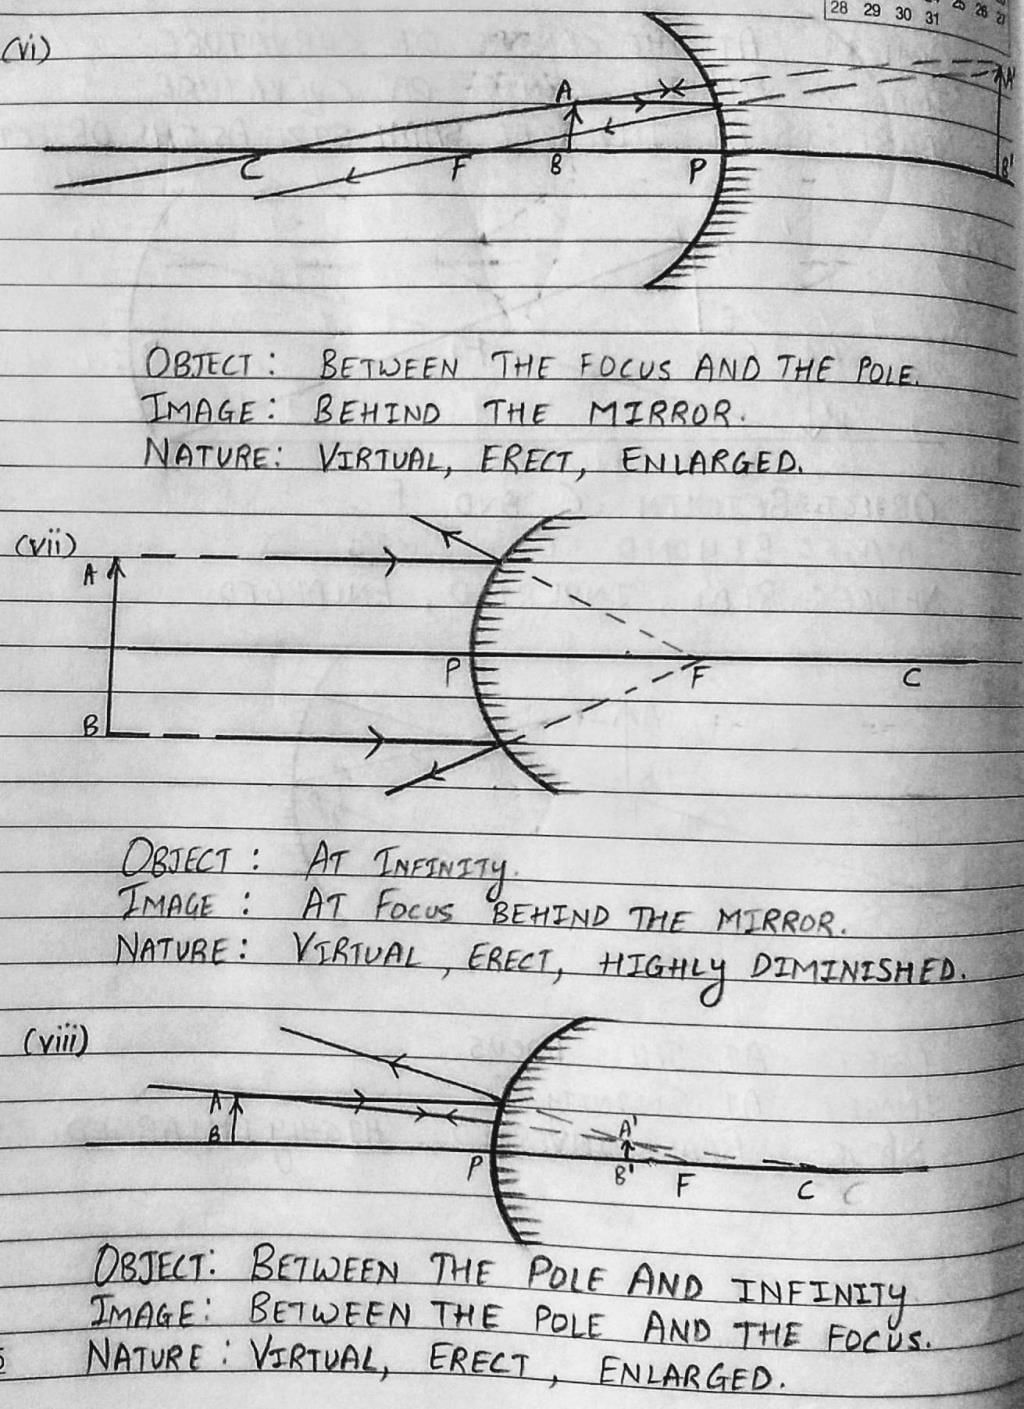 28 29 30 31
25 26 27
(vi)
A
A'
C F B P B'
OBJECT: BETWEEN THE FOCUS AND THE POLE.
IMAGE: BEHIND THE MIRROR.
NATURE: VIRTUAL, ERECT, ENLARGED.
(vii)
A
P F C
B
OBJECT: AT INFINITY.
IMAGE: AT FOCUS BEHIND THE MIRROR.
NATURE: VIRTUAL, ERECT, HIGHLY DIMINISHED.
(viii)
A
A'
B
P B' F C C
OBJECT: BETWEEN THE POLE AND INFINITY
IMAGE: BETWEEN THE POLE AND THE FOCUS.
NATURE: VIRTUAL, ERECT, ENLARGED.